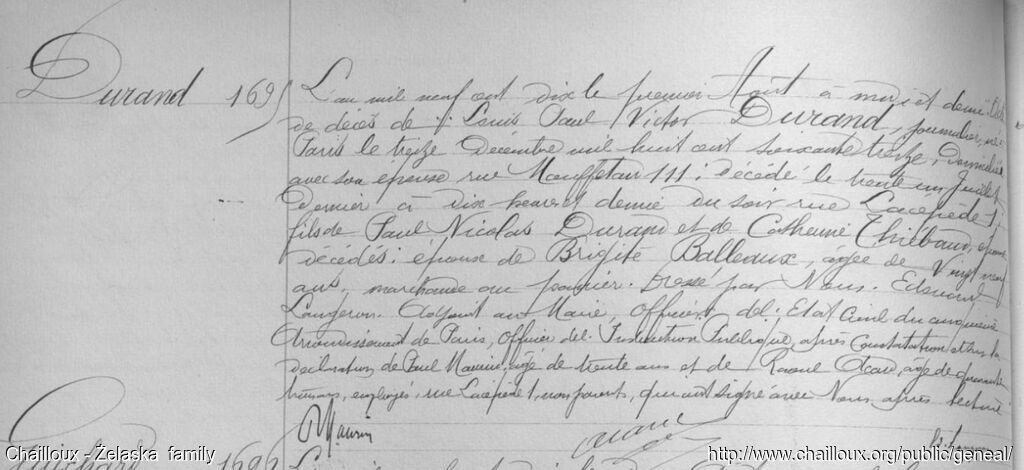 Durand 1695
L'an mil neuf cent dix le premier Août à midi et demi. Acte
de décès de : Louis Paul Victor DURAND, journalier, né à
Paris le treize Décembre mil huit cent soixante treize, domicilié
avec son épouse rue Mouffetard 111 ; décédé le trente un Juillet
dernier à dix heures et demie du soir rue Lacépède 1;
fils de Paul Nicolas Durand et de Catherine Thiébaud, époux
décédés : époux de Brigite Balleaux, âgée de Vingt neuf
ans, marchande au panier. Dressé par Nous. Edmond
Langeron. Adjoint au Maire, Officier de l'Etat Civil du cinquième
Arrondissement de Paris, Officier de l'Instruction Publique, après Constatation et sur la
déclaration de Paul Maurin âgé de trente ans et de Raoul âgé de quarante
trois ans, employés, rue Lacépède 1, non parents, qui ont signé avec Nous après lecture
P Maurin
Guichard 1696
Chailloux - Żelaska family
http://www.chailloux.org/public/geneal/